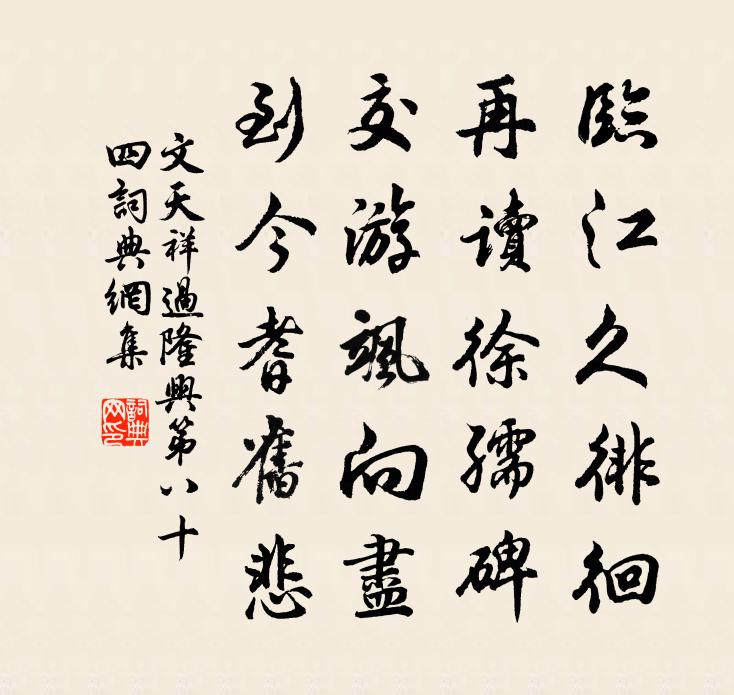 臨江久徘徊
再讀徐孺碑
交游颯向盡
到今耆舊悲
文天祥過隆興第八十
四詞典網集
詞典
网印